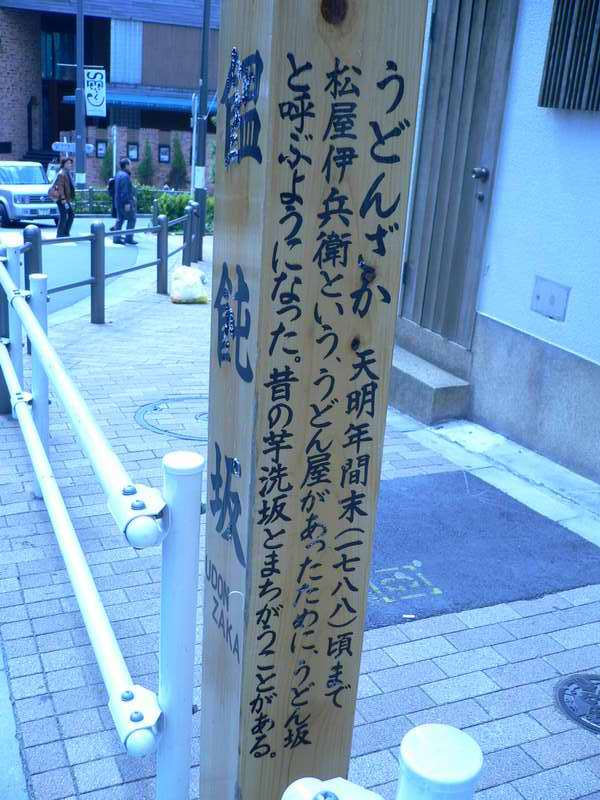 うどんざか 天明年間末（一七八八）頃まで
松屋伊兵衛という、うどん屋があったために、うどん坂
と呼ぶようになった。昔の芋洗坂とまちがうことがある。
饂飩坂
UDON
ZAKA